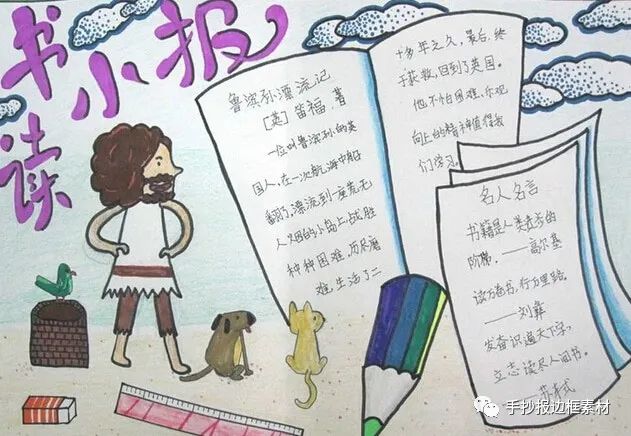 读书小报
鲁滨孙漂流记
[英] 笛福，著
一位叫鲁滨孙的英
国人，在一次航海中船
翻了，漂流到一座荒无
人烟的小岛上，战胜
种种困难，历尽磨
难，生活了二
十多年之久，最后，终
于获救，回到了英国。
他不怕困难，乐观
向上的精神值得我
们学习。
名人名言
书籍是人类进步的
阶梯。——高尔基
读万卷书，行万里路。
——刘彝
发奋识遍天下字，
立志读尽人间书。
手抄报边框素材